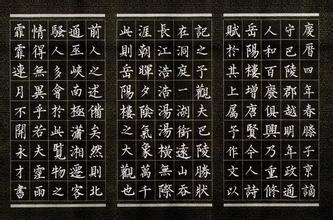 慶曆四年春滕子京謫
守巴陵郡越明年政通
人和百廢俱興乃重修
岳陽樓增唐賢今人詩
賦於其上屬予作文以
記之予觀夫巴陵勝狀
在洞庭一湖銜遠山吞
長江浩浩湯湯橫無際
涯朝暉夕陰氣象萬千
此則岳陽樓之大觀也
前人之述備矣然則北
通巫峽南極瀟湘遷客
騷人多會於此覽物之
情得無異乎若夫霪雨
霏霏連月不開永才書